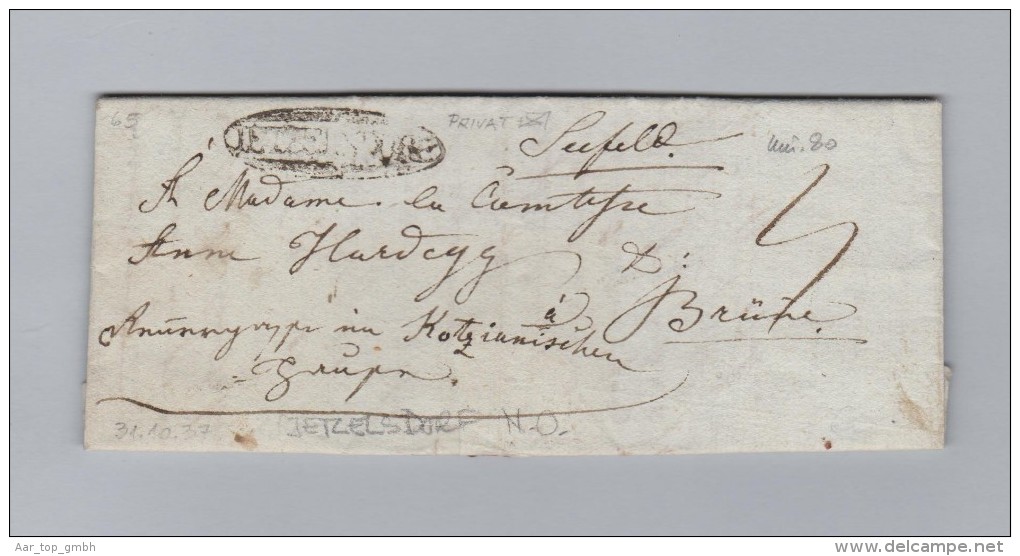 65
PRIVAT
Seefeld.
A Madame la Comtesse
Anne Hardegg
à Brünn.
im Kotzianischen
Hause.
31.10.37 JETZELSDORF N.Ö.
Aar_top_gmbh
www.delcampe.net